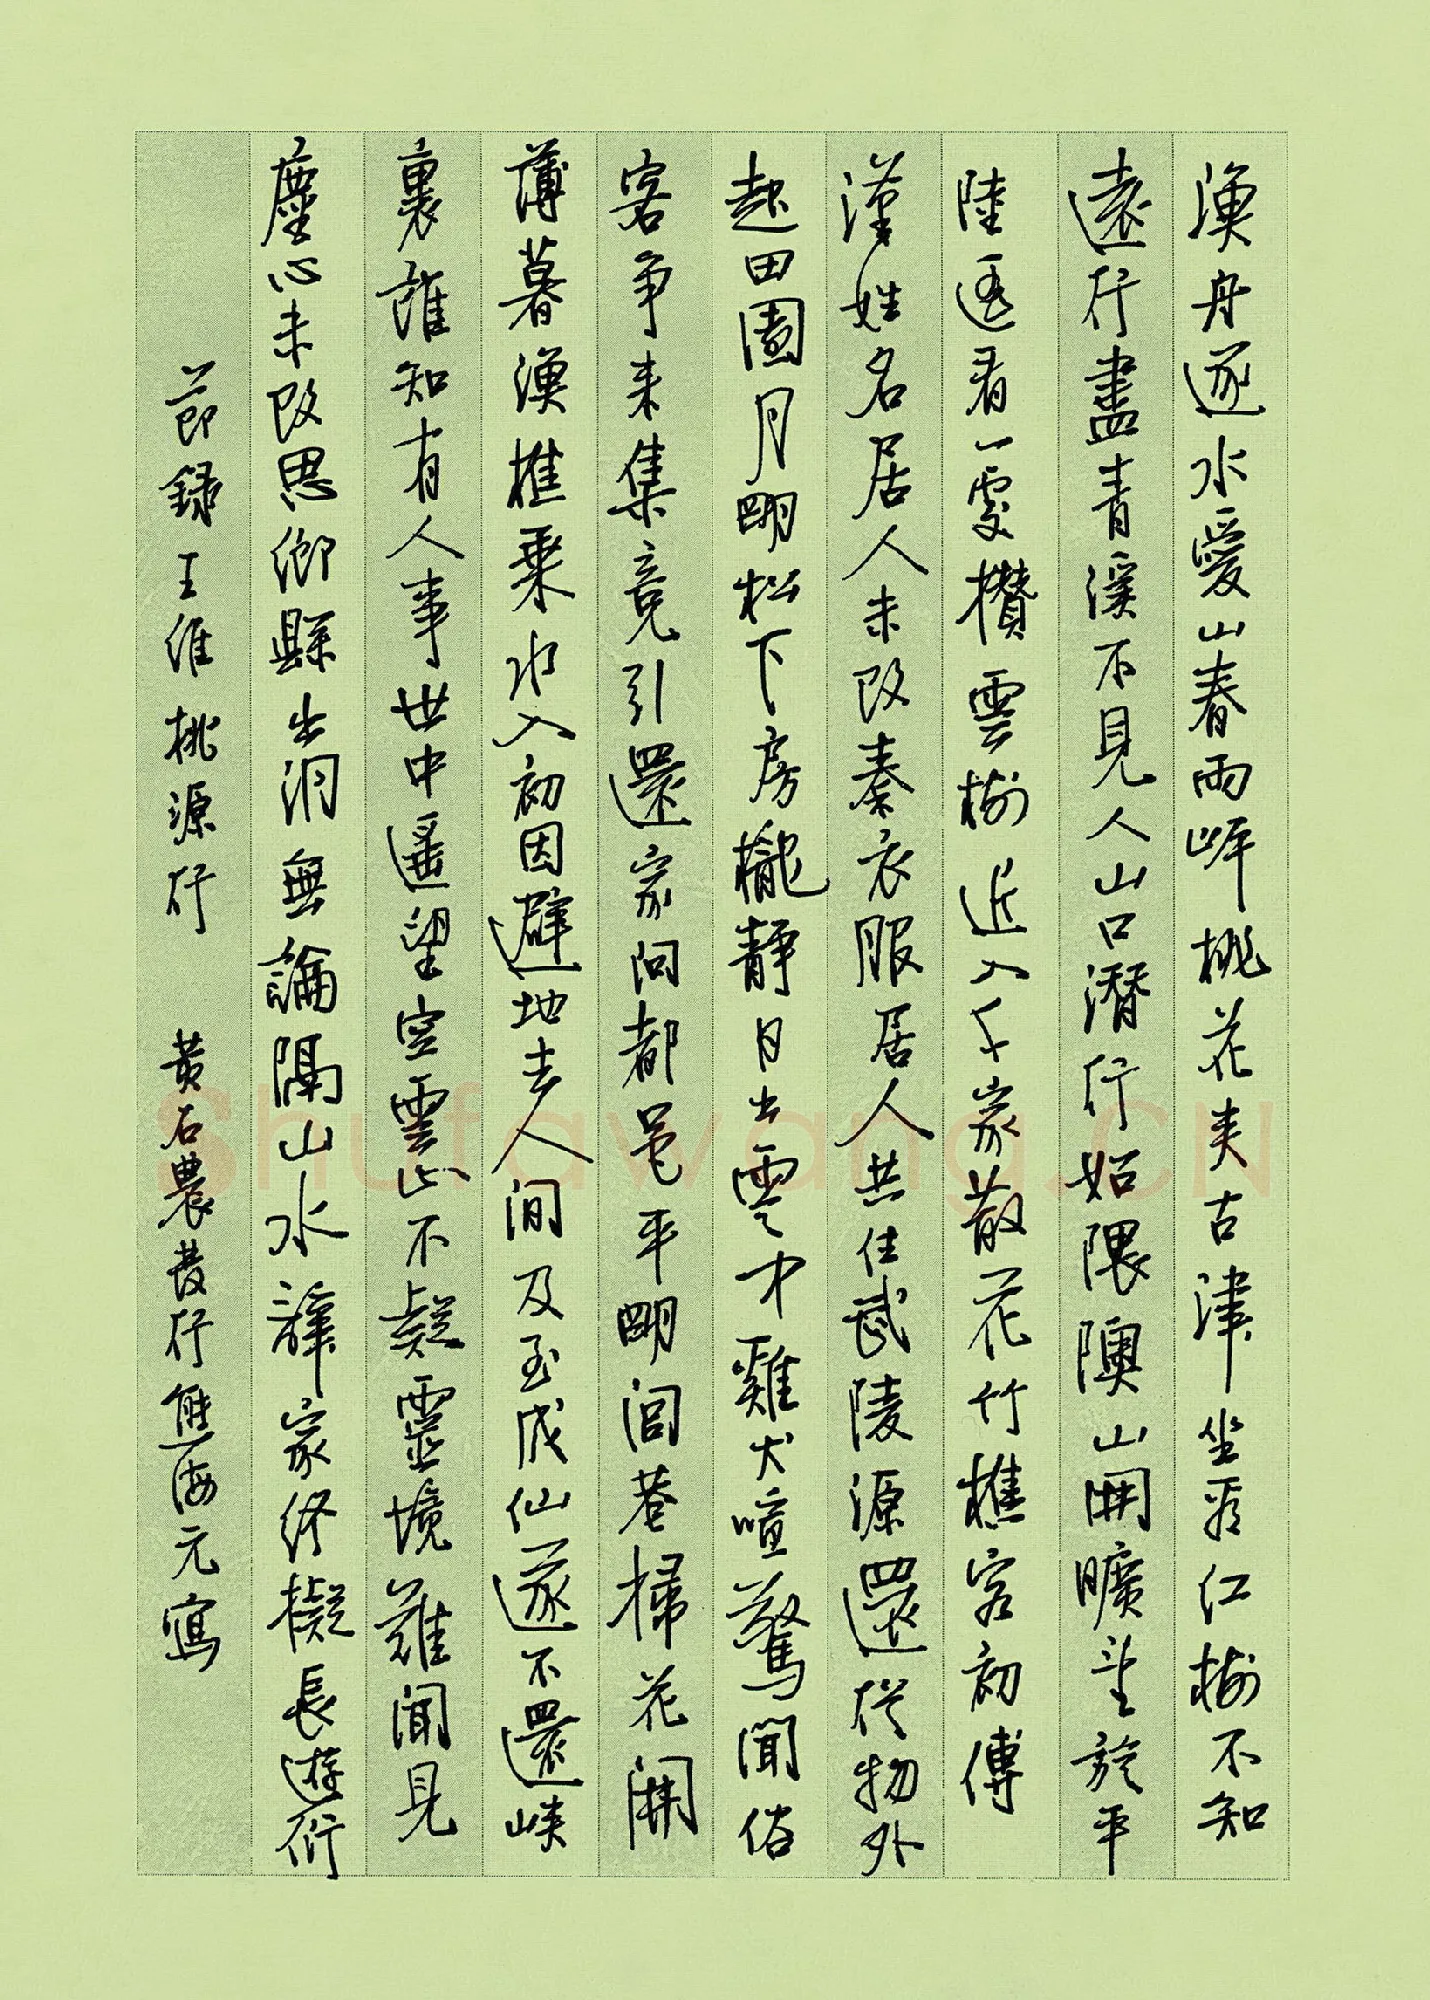 漁舟逐水愛山春兩岸桃花夾古津坐看紅樹不知
遠行盡青溪不見人山口潛行始隈隩山開曠望旋平
陸遥看一處攢雲樹近入千家散花竹樵客初傳
漢姓名居人未改秦衣服居人共住武陵源還從物外
起田園月明松下房櫳靜日出雲中雞犬喧驚聞俗
客爭來集競引還家問都邑平明閭巷掃花開
薄暮漁樵乘水入初因避地去人間及至成仙遂不還峽
裏誰知有人事世中遥望空雲山不疑靈境難聞見
塵心未改思鄉縣出洞無論隔山水辭家終擬長遊衍
節錄王維桃源行 黃石農發行熊海元寫
Shufawang.CN